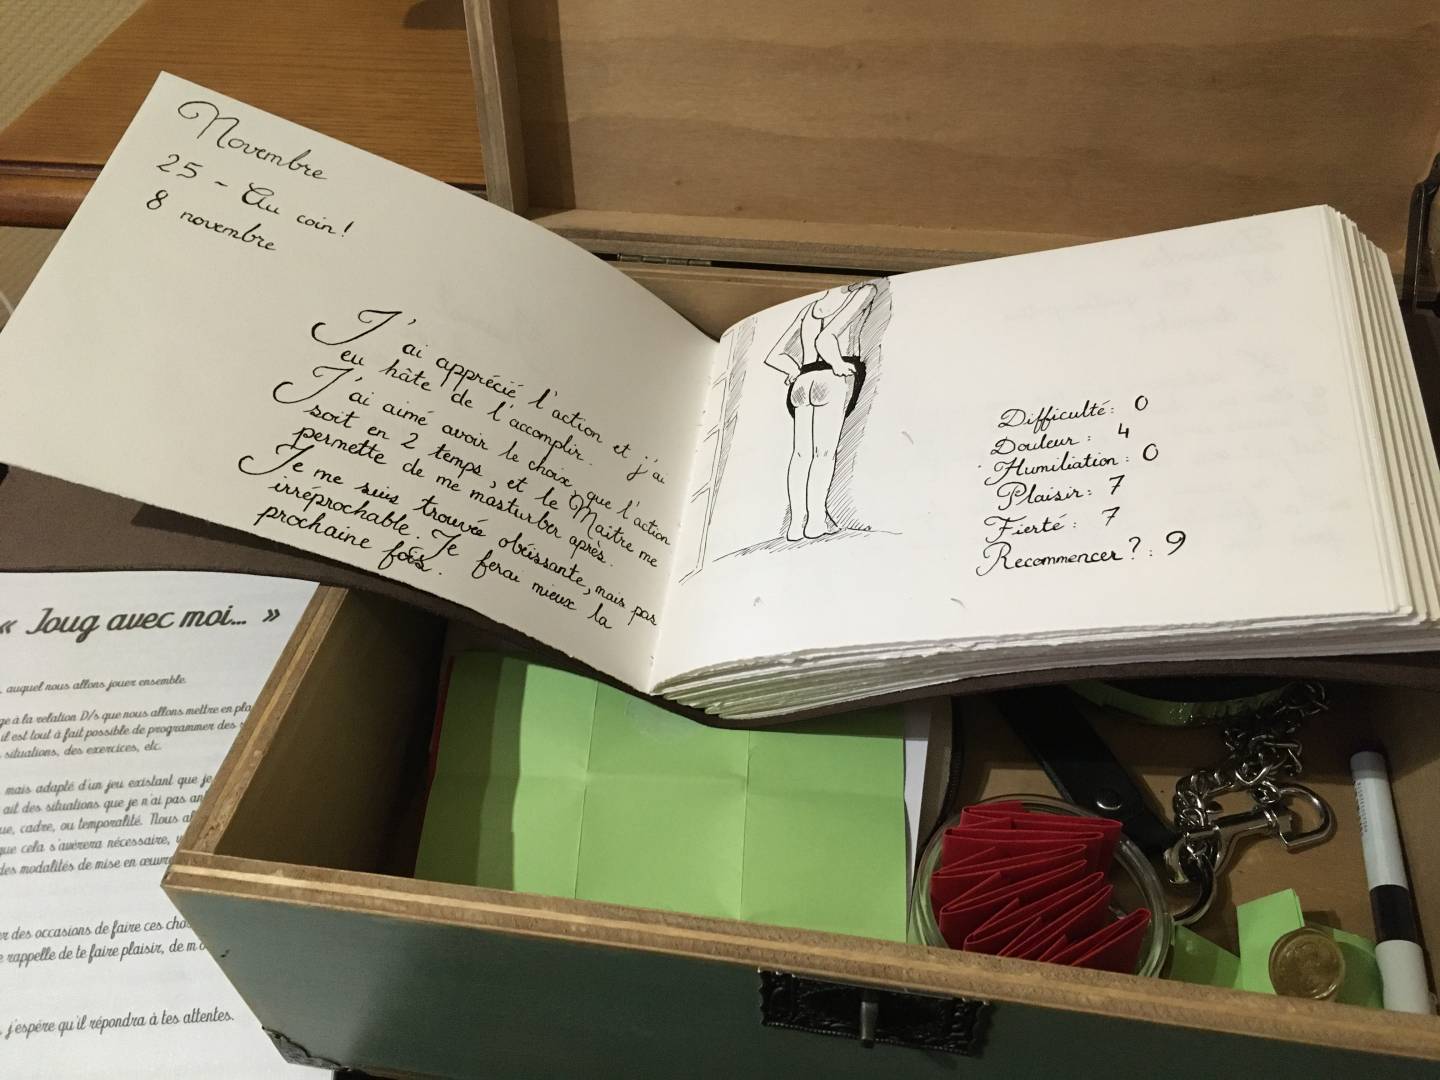 Novembre
25 - Au coin!
8 novembre
J'ai apprécié l'action et j'ai
eu hâte de l'accomplir.
J'ai aimé avoir le choix, que l'action
soit en 2 temps, et le Maitre me
permette de me masturber après.
Je me suis trouvée obéissante, mais pas
irréprochable. Je ferai mieux la
prochaine fois.
Difficulté: 0
Douleur: 4
Humiliation: 0
Plaisir: 7
Fierté: 7
Recommencer?: 9
« Joug avec moi... »
auquel nous allons jouer ensemble.
à la relation D/s que nous allons mettre en
il est tout à fait possible de programmer des
situations, des exercices, etc.
mais adapté d'un jeu existant que je
ait des situations que je n'ai pas
cadre, ou temporalité. Nous
que cela s'avèrera nécessaire,
des modalités de mise en
des occasions de faire ces
rappelle de te faire plaisir, de
j'espére qu'il répondra à tes attentes.